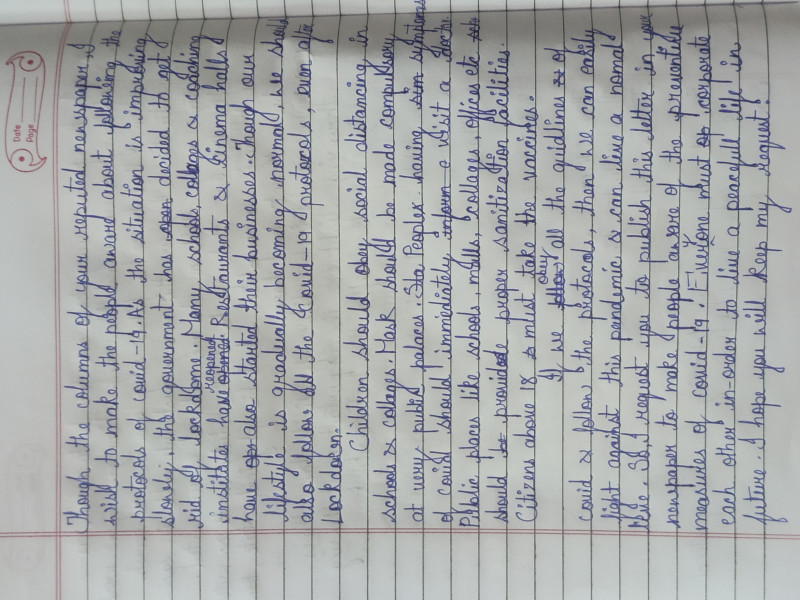 Date
Page
Though the columns of your reputed newspaper I
wish to make the people award about following the
protocols of covid-19. As the situation is improving
slowly, the government has decided to get
rid of lockdome. Many schools, collages & coaching
institute have reopened. Restaurants & Cinema halls
have also started their businesses. Though our
lifestyle is gradually becoming normal, we should
also follow all the Covid-19 protocols, even after
Lockdown.
Children should obey social distancing in
schools & collages. Mask should be made compulsory
at very public palaces. Peoples having symptoms
of covid should immediately visit a doctor.
Public places like schools, malls, collages, offices etc
should provide proper sanitization facilities.
Citizens above 18 must take the vaccines.
If we obey all the guidlines of
covid & follow the protocols, then we can easily
fight against this pandemic & can live a nomal
life. So, I request you to publish this letter in your
newspaper to make people aware of the preventive
measures of covid-19. Everyone must corporate
each other in-order to live a peacefull life in
future. I hope you will keep my request.